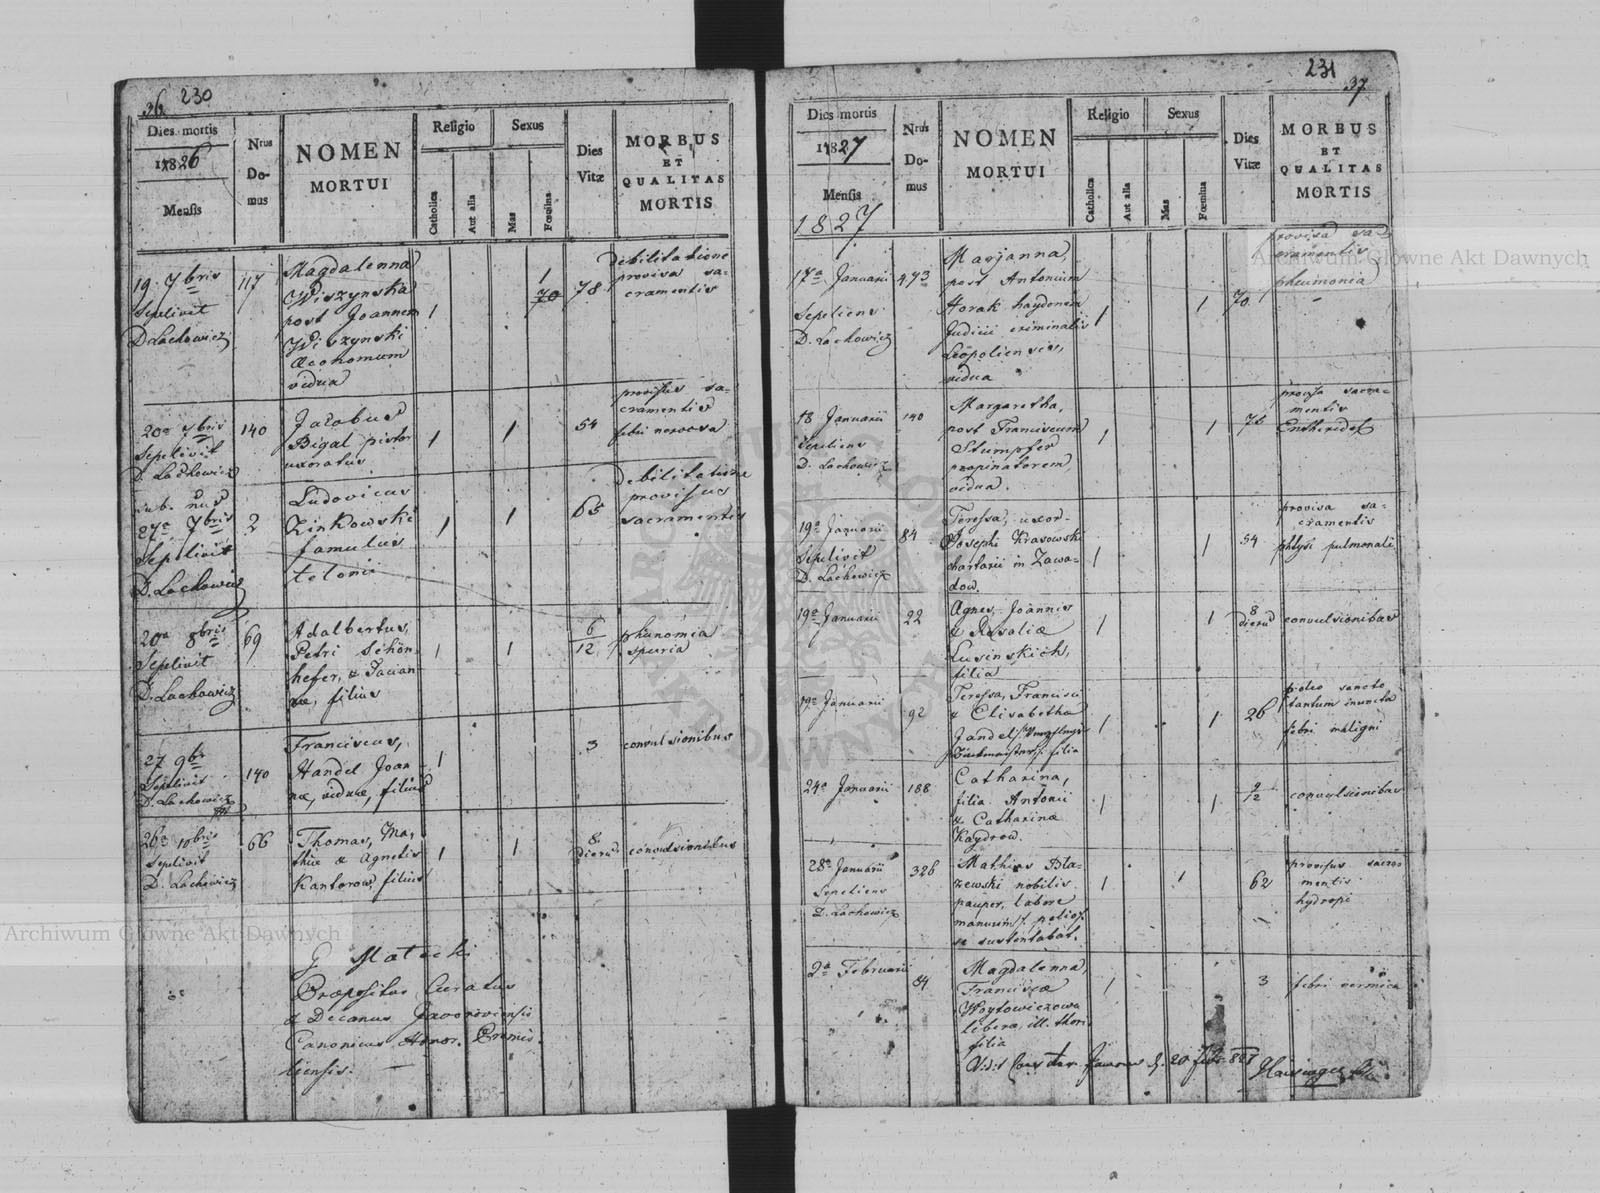 36. 230
Dies mortis
1826
Mensis
Nrus
Do-
mus
NOMEN
MORTUI
Religio
Catholica
Aut alia
Sexus
Mas
Fœmina
Dies
Vitæ
MORBUS
ET
QUALITAS
MORTIS
19. 7bris
Sepelivit
D Lachowicz
117
Magdalenna
Wiszynska
post Joannem
Wiszynski
Œconomum
vidua
1
1
70
78
debilitatione
provisa sa-
cramentis
20a 7bris
Sepelivit
D. Lachowicz
140
Jacobus
Bigal pistor
uxoratus
1
1
54
provisus sa-
cramentis
febri nervosa
27a 7bris
Sepelivit
D. Lachowicz
2
Ludovicus
Zinkowski
famulus
telonii
1
1
65
Debilitatione
provisus
sacramentis
20a 8bris
Sepelivit
D. Lachowicz
69
Adalbertus,
Petri Schön-
hefer, & Tacian-
næ, filius
1
1
6
12
spuria
27 9bris
Sepelivit
D. Lachowicz
140
Franciscus,
Handel Joan-
næ, viduæ, filius
1
3
convulsionibus
26a 10bris
Sepelivit
D. Lachowicz
66
Thomas, Ma-
thiæ & Agnetis
Kantorow, filius
1
1
8
dierum
convulsionibus
Præpositus Curatus
& Decanus Javoroviensis
Canonicus Honor. Premis-
liensis.
231
37
Dies mortis
1827
Mensis
1827
Nrus
Do-
mus
NOMEN
MORTUI
Religio
Catholica
Aut alia
Sexus
Mas
Fœmina
Dies
Vitæ
MORBUS
ET
QUALITAS
MORTIS
17a Januarii
Sepeliens
D. Lachowicz
473
Marjanna,
post Antonium
Horak haydonem
Judicii criminalis
Leopoliensis,
vidua
1
1
70
provisa sa-
cramentis
pneumonia
18 Januarii
Sepeliens
D. Lachowicz
140
Margaretha,
post Franciscum
Stumpfer
propinatorem,
vidua.
1
1
75
provisa sacra-
mentis
19a Januarii
Sepelivit
D. Lachowicz
84
Teressa, uxor
Josephi Krasowski
in Zawa-
dow.
1
1
54
provisa sa-
cramentis
phtysi pulmonali
19a Januarii
22
Agnes, Joannis
& Rosaliæ
Lusinskich,
filia
1
1
8
dierum
convulsionibus
19a Januarii
92
Teressa, Francisci
& Elisabetha
Jandel
filia
1
1
26
oleo sancto
tantum inuncta
febri maligni
24a Januarii
188
Catharina,
filia Antonii
& Catharinæ
Kaydrow.
1
1
9
12
convulsionibus
28a Januarii
Sepeliens
D. Lachowicz
326
Mathias Bła-
zewski nobilis
pauper, labore
manuum
se sustentabat.
1
1
62
provisus sacra-
mentis
hydropi
2a Februarii
84
Magdalenna,
Franciscæ
Woytowiczowa
libera, ill. thori
filia
1
3
febri vermica
Archiwum Główne Akt Dawnych
Archiwum Główne Akt Dawnych
ARCHIWUM GŁÓWNE AKT DAWNYCH